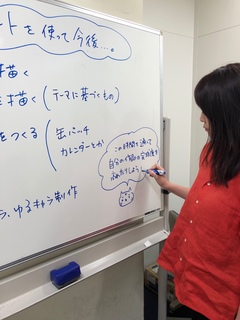 トを使って今後…。
描く
を描く（テーマに基づくもの）
をつくる（缶バッチ
カレンダーとか
この時間を通って
自分の作品の
しよう
う、ゆるキャラ制作